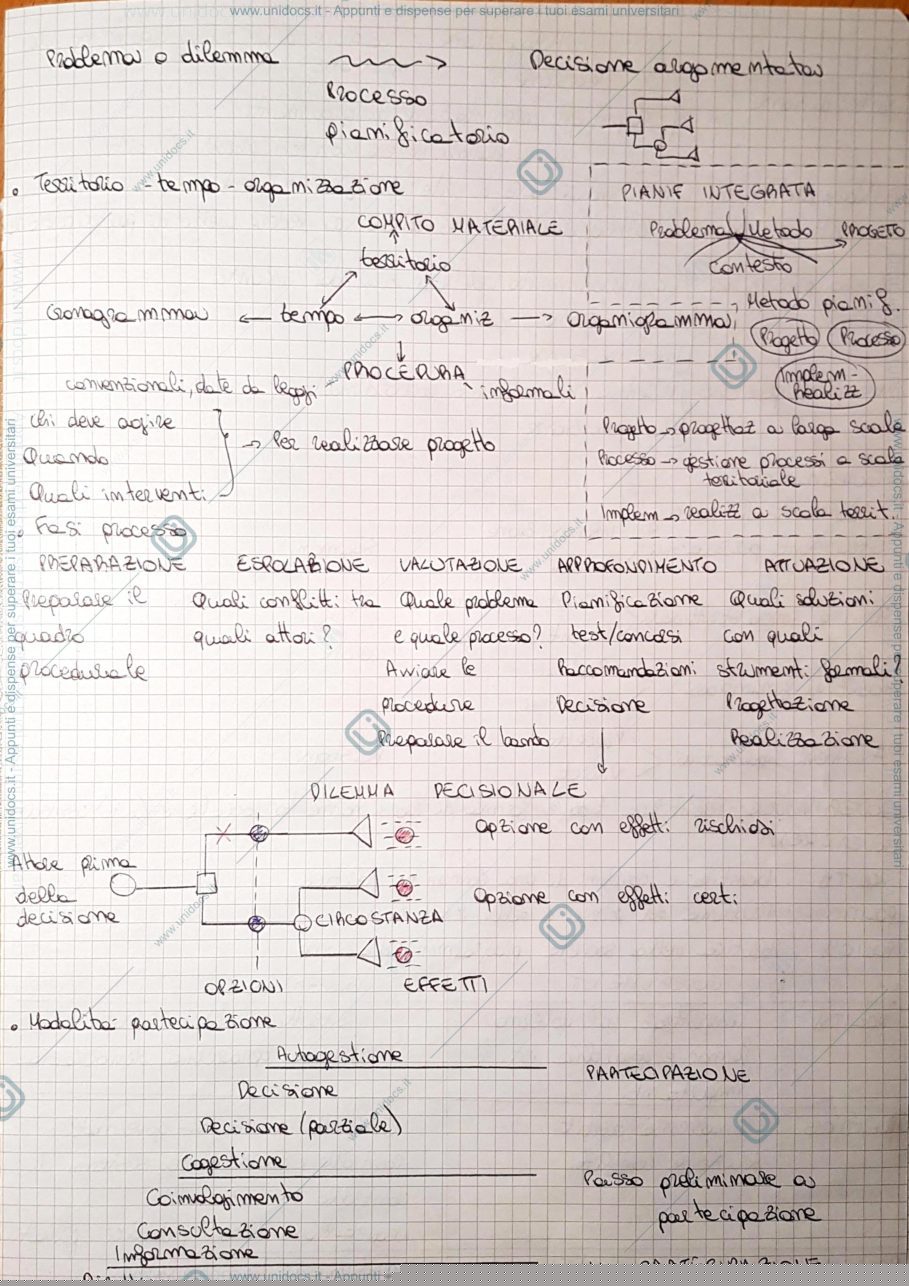 www.unidocs.it - Appunti e dispense per superare i tuoi esami universitari
Problema o dilemma
Decisione argomentata
Processo
pianificatorio
• Territorio - tempo - organizzazione
PIANIF INTEGRATA
COMPITO MATERIALE
Problema/Metodo PROGETO
territorio
contesto
Metodo pianif.
Cronogramma ← tempo ↔ organiz → organigramma
Progetto Processo
PROCEDURA
Implem-
Realizz
convenzionali, date da leggi
informali
chi deve agire
Quando
Quali interventi
→ Per realizzare progetto
Progetto → progettaz a larga scala
Processo → gestione processi a scala
territoriale
Implem → realizz a scala territ.
• Fasi processo
PREPARAZIONE ESPOLAZIONE VALUTAZIONE APPROFONDIMENTO ATTUAZIONE
Preparare il Quali conflitti tra Quale problema Pianificazione Quali soluzioni
quadro quali attori? e quale processo? test/concorsi con quali
procedurale Avviare le Raccomandazioni strumenti formali?
procedure Decisione Progettazione
Preparare il bando Realizzazione
DILEMMA DECISIONALE
Opzione con effetti rischiosi
Attore prima
della
decisione
Opzione con effetti certi
CIRCOSTANZA
OPZIONI EFFETTI
• Modalità partecipazione
Autogestione
PARTECIPAZIONE
Decisione
Decisione (parziale)
Cogestione
Passo preliminare a
partecipazione
Coinvolgimento
Consultazione
Informazione
www.unidocs.it - Appunti e
www.unidocs.it - Appunti e dispense per superare i tuoi esami universitari
www.unidocs.it - Appunti e dispense per superare i tuoi esami universitari
www.unidocs.it